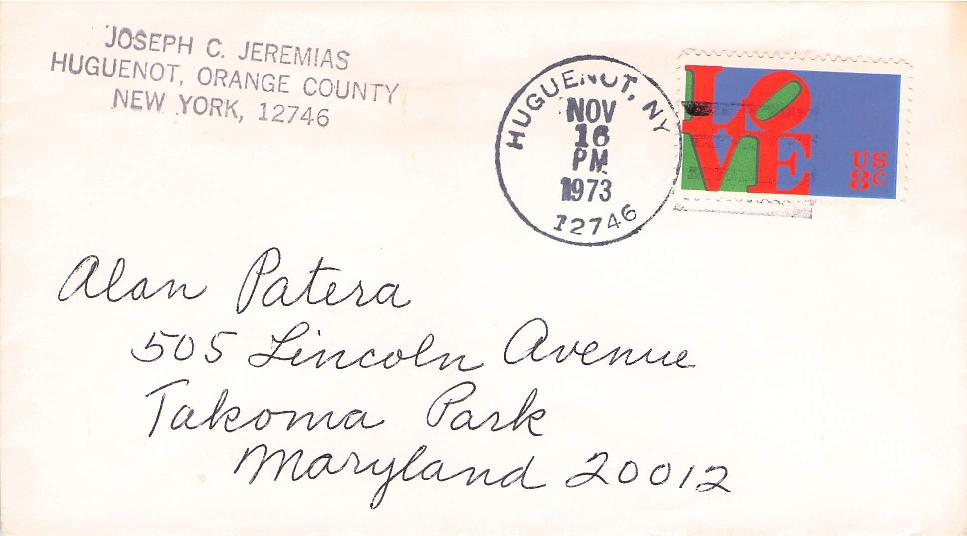 JOSEPH C. JEREMIAS
HUGUENOT, ORANGE COUNTY
NEW YORK, 12746
HUGUENOT, NY
NOV
16
PM
1973
12746
LO
VE
US
8c
Alan Patera
505 Lincoln Avenue
Takoma Park
Maryland 20012